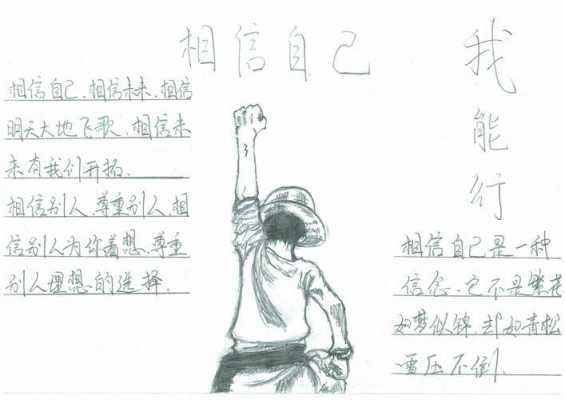 相信自己
我能行
相信自己、相信未来、相信
明天大地飞歌、相信未
来有我们开拓。
相信别人、尊重别人、相
信别人为你着想、尊重
别人理想的选择。
相信自己是一种
信念、它不是繁花
如梦似锦、却如青松
雪压不倒。